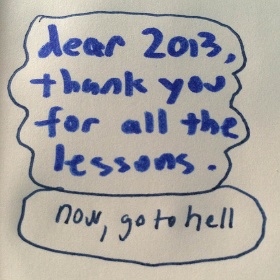 dear 2013,
thank you
for all the
lessons.
now, go to hell